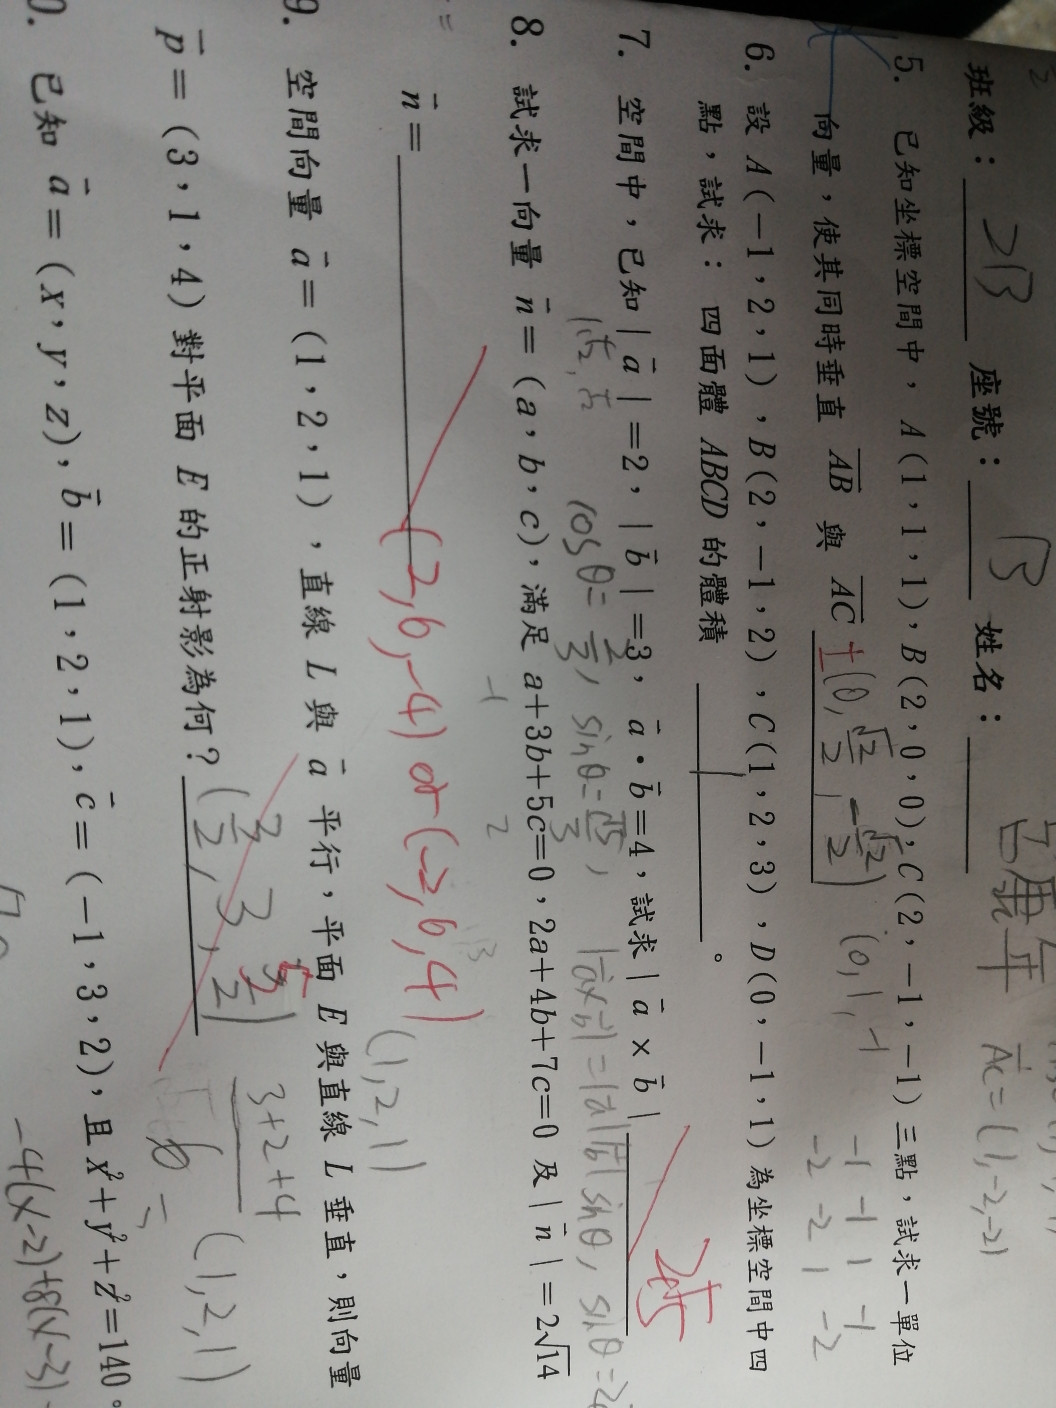 班級：213 座號：13 姓名：
5. 已知坐標空間中，A(1,1,1),B(2,0,0),C(2,-1,-1)三點，試求一單位
向量，使其同時垂直 AB 與 AC ±(0, √2/2, -√2/2)
(0, 1, -1
AC=(1,-2,-2)
-1 -1 1 -1
-2 -2 1 -2
6. 設 A(-1,2,1),B(2,-1,2),C(1,2,3),D(0,-1,1)為坐標空間中四
點，試求：四面體 ABCD 的體積 。
7. 空間中，已知|a|=2，|b|=3，a•b=4，試求|a×b| 2√5
cosθ=2/3, sinθ=√5/3, |a×b|=|a||b|sinθ, sinθ=
8. 試求一向量 n=(a,b,c)，滿足 a+3b+5c=0，2a+4b+7c=0 及|n|=2√14
n= (2,6,-4) or (-2,6,4)
9. 空間向量 a=(1,2,1)，直線 L 與 a 平行，平面 E 與直線 L 垂直，則向量
(1,2,1)
p=(3,1,4)對平面 E 的正射影為何？(3/2, 3, 3/2) 5
3+2+4
6
(1,2,1)
0. 已知 a=(x,y,z),b=(1,2,1),c=(-1,3,2)，且 x²+y²+z²=140。
-4(x-2)+8(y-3)